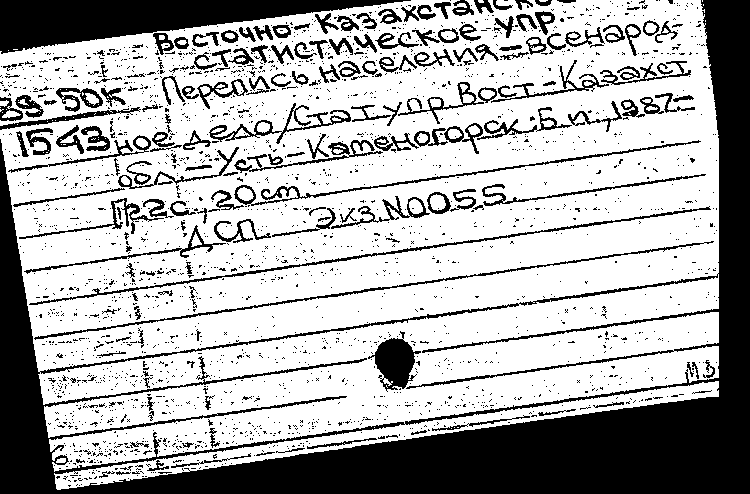 Восточно-Казахстанское
статистическое упр.
Перепись населения - всенарод-
89-50к
1543
ное дело/Стат упр Вост-Казахст
обл. - Усть-Каменогорск: Б.и., 1987 -
[1], 22с.; 20 cm.
ДСП. Экз. N0055.
МЗ